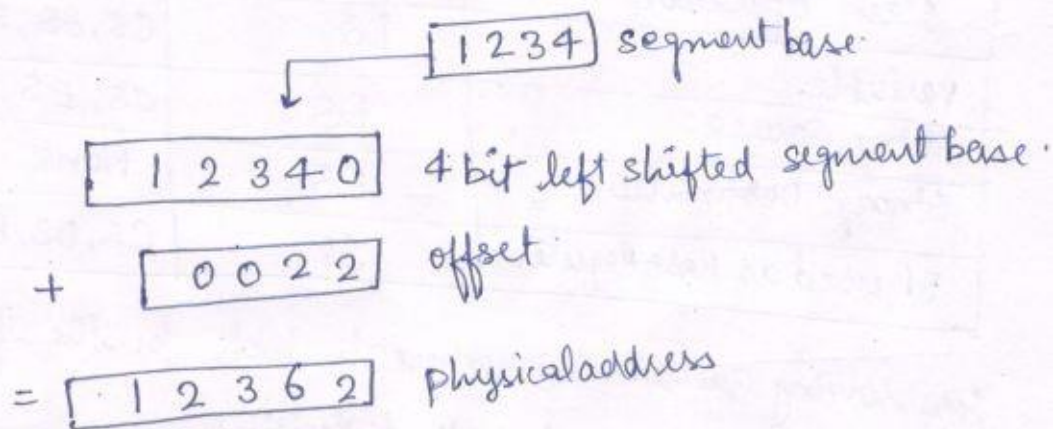 1234 segment base.
12340 4 bit left shifted segment base.
+ 0022 offset
= 12362 physical address